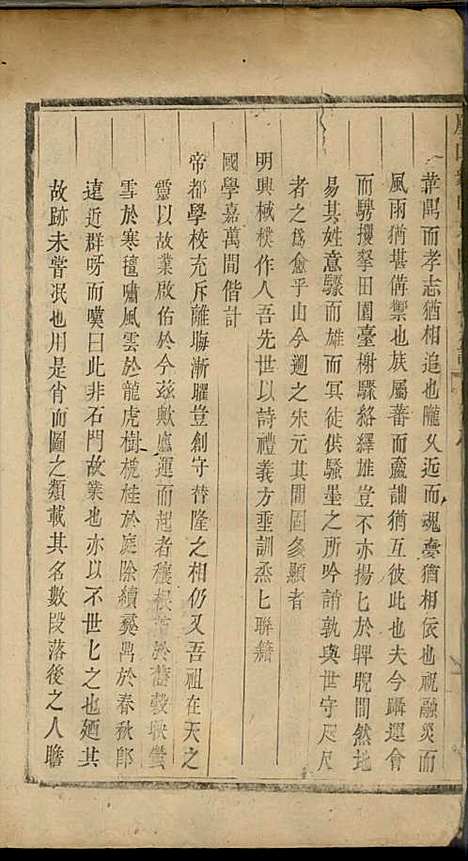 華閥而孝志猶相追也隴乂近而魂憂猶相依也視融災而
風雨猶堪備禦也族屬蕃而蘆詘猶互彼此也夫今躋運會
而騁攫拏田園臺榭驟絡繹雄豈不亦揚匕於睥睨間然地
易其姓意驟而雄而冥徒供騷墨之所吟誚孰與世守尺尺
者之為愈乎山今遡之宋元其間固多顯者
明興棫樸作人吾先世以詩禮義方垂訓烝匕聯籍
國學嘉萬間偕計
帝都學校充斥離晦漸曜豈創守替隆之相仍又吾祖在天之
靈以故業啟佑於今茲歟應運而起者穰根於舊轂映螢
雪於寒氊嘯風雲於龍虎樹梡桂於庭除續彝鼎於春秋郎
遠近群呀而嘆曰此非石門故業也亦以不世匕之也廼其
故跡未嘗泯也用是肖而圖之類載其名數段落後之人瞻